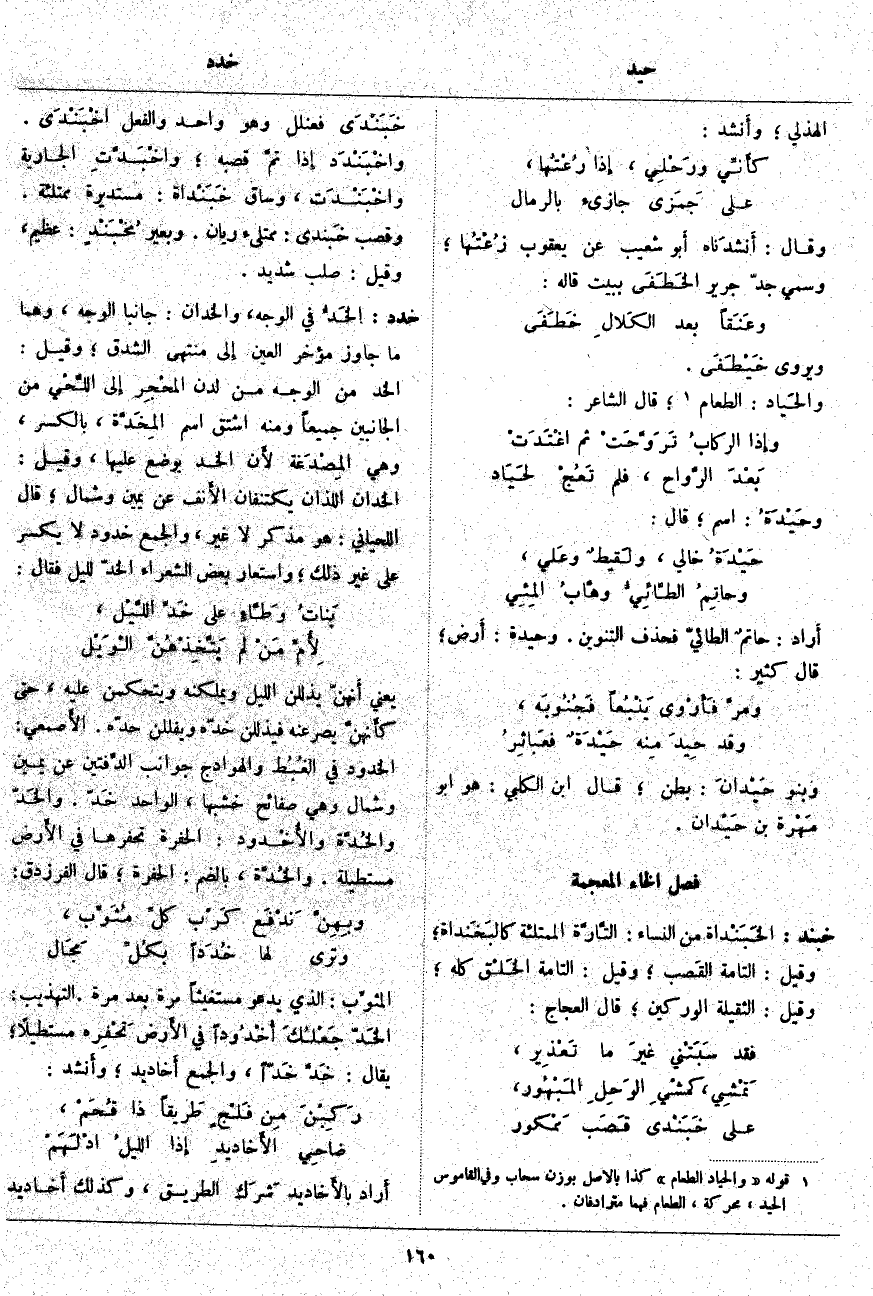 حيد
خدد
الهذلي ؛ وأَنشد :
كأَنّي ورَحْلِي ، إِذا رُعْتُها ،
على جَمَزى جازىء بالرمال
وقال : أَنشدَناه أَبو شعيب عن يعقوب زُعْتُها ؛
وسمي جدّ جرير الخَطَفَى ببيت قاله :
وعَنَقاً بعد الكَلالِ خَطَفَى
ويروى خَيْطَفَى .
والحَياد : الطعام ١ ؛ قال الشاعر :
وإِذا الركابُ تَرَوَّحَتْ ثم اغْتَدَتْ
بَعْدَ الرَّواح ، فلم تَعُجْ لحَيَاد
وحَيْدَةُ : اسم ؛ قال :
حَيْدَةُ خالي ، ولَقيطٌ وعَلي ،
وحاتِمُ الطَّائيُّ وهَّابُ المِئِي
أَراد : حاتمٌ الطائيّ فحذف التنوين . وحيدة : أَرض ؛
قال كثير :
ومرَّ فأَرْوى يَنْبُعاً فَجُنُوبَه ،
وقد حِيدَ مِنه حَيْدَةٌ فعَباثِرُ
وبنو حَيْدانَ : بطن ؛ قال ابن الكلبي : هو ابو
مَهْرة بن حَيْدان .
فصل الخاء المعجمة
خبند : الخَبَنْداة من النساء : التَّارَّة الممتلئة كالبَخَنداة ؛
وقيل : التامة القصب ؛ وقيل : التامة الخَلْق كله ؛
وقيل : الثقيلة الوركين ؛ قال العجاج :
فقد سَبَتْني غيرَ ما تَعْذيرِ ،
تَمْشِي ، كمشْيِ الوَحِلِ المَبْهُور ،
على خَبَنْدى قَصَب مَمْكور
١ قوله « والحياد الطعام » كذا بالاصل بوزن سحاب وفي القاموس
الحيد ، محركة ، الطعام فهما مترادفان .
خَبَنْدَى فعنلل وهو واحد والفعل اخْبَنْدَى .
واخْبَنْدَد إِذا تمَّ قصبه ؛ واخْبَنْدَتِ الجارية
واخْبَنْدَدَت ، وساق خَبَنْداة : مستديرة ممتلئة .
وقصب خَبندى : ممتلىء ريان . وبعير مُخْبَنْدٍ : عظيم ،
وقيل : صلب شديد .
خدد : الخَدُّ في الوجه ، والخدان : جانبا الوجه ، وهما
ما جاوز مؤخر العين إِلى منتهى الشدق ؛ وقيل :
الخد من الوجه من لدن المحْجِر إِلى اللَّحْي من
الجانبين جميعاً ومنه اشتق اسم المِخَدَّة ، بالكسر ،
وهي المِصْدَغة لأَن الخد يوضع عليها ، وقيل :
الخدان اللذان يكتنفان الأَنف عن يمين وشمال ؛ قال
اللحياني : هو مذكر لا غير ، والجمع خدود لا يكسر
على غير ذلك ؛ واستعار بعض الشعراء الخدّ لليل فقال :
بَناتُ وَطَّاءٍ على خَدِّ اللَّيْل ،
لِأُمِّ مَنْ لم يَتَّخِذْهُنَّ الوَيْل
يعني أَنهنّ يذللن الليل ويملكنه ويتحكمن عليه ، حتى
كأَنهنّ يصرعنه فيذللن خدّه ويفللن حدّه . الأَصمعي :
الخدود في الغُبُط والهوادج جوانب الدَّفتين عن يمين
وشمال وهي صفائح خشبها ، الواحد خَدّ . والخَدّ
والخُدَّة والأُخْدود : الحفرة تحفرها في الأَرض
مستطيلة . والخُدَّة ، بالضم : الحفرة ؛ قال الفرزدق :
وبِهِنَّ نَدْفَع كَرْب كلِّ مُثَوِّب ،
وترى لها خُدَداً بكُلِّ مَجَال
المثوّب : الذي يدعو مستغيثاً مرة بعد مرة . التهذيب :
الخَدّ جَعْلُكَ أُخْدُوداً في الأَرض تَحْفِره مستطيلًا ؛
يقال : خَدَّ خَدّاً ، والجمع أَخاديد ؛ وأَنشد :
رَكِبْنَ مِن فَلْجٍ طَريقاً ذا قُحَمْ ،
ضاحِي الأَخاديدِ إِذا الليلُ ادْلَهَمْ
أَراد بالأَخاديد شَرَك الطريق ، وكذلك أَخاديد
١٦٠